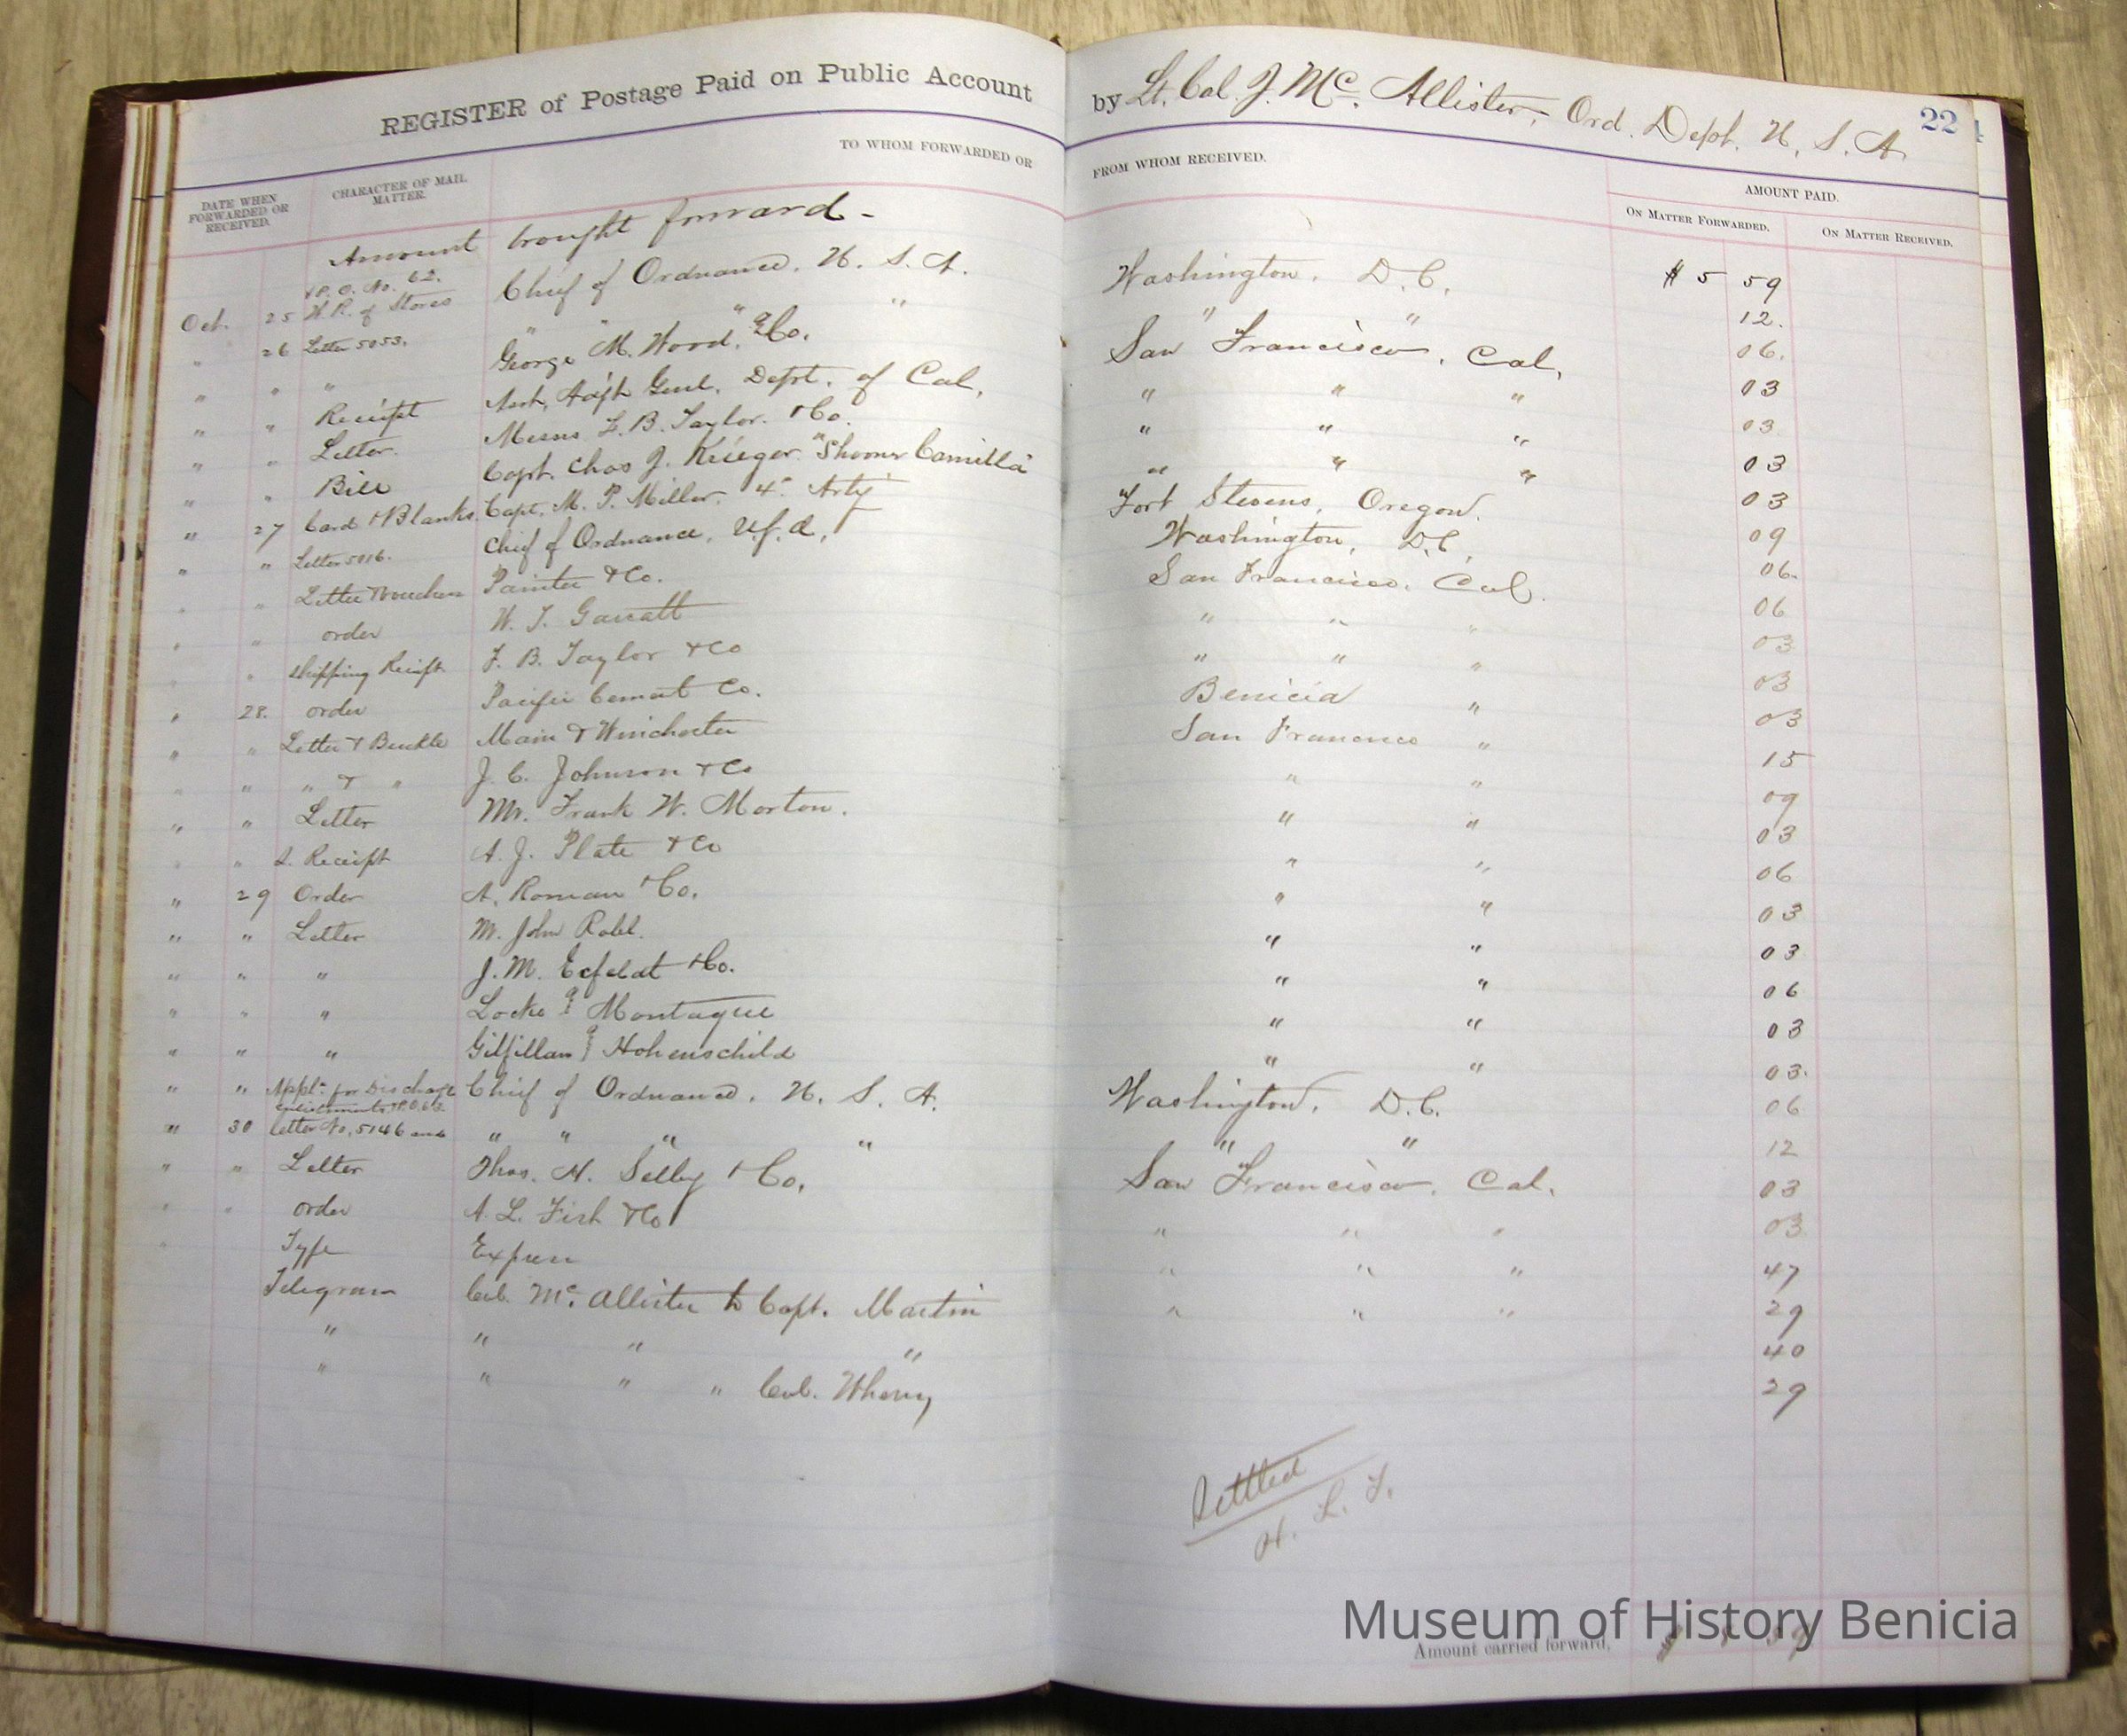 REGISTER of Postage Paid on Public Account by Lt. Col. J. Mc. Allister, Ord. Dept. U. S. A. 22
DATE WHEN FORWARDED OR RECEIVED. CHARACTER OF MAIL MATTER. TO WHOM FORWARDED OR FROM WHOM RECEIVED. AMOUNT PAID.
ON MATTER FORWARDED. ON MATTER RECEIVED.
Amount brought forward - $ 5 59
P. O. No. 62.
Oct. 25 W. R. of Stores Chief of Ordnance, U. S. A. Washington, D. C. 12.
" 26 Letter 5053. " " " " " " 06.
" " " George M. Wood, & Co. San Francisco, Cal. 03
" " Receipt Asst. Adjt Genl. Dept. of Cal. " " " 03
" " Letter. Messrs F. B. Taylor. & Co. " " " 03
" " Bill Capt. Chas J. Krieger. "Shooner Camilla" " " " 03
" 27 Card & Blanks. Capt. M. P. Miller. 4" Arty Fort Stevens, Oregon. 09
" " Letter 5016. Chief of Ordnance, U.S.A. Washington, D.C. 06.
" " Letter & Vouchers Painter & Co. San Francisco, Cal. 06
" " order W. T. Garratt " " " 03
" " Shipping Receipt F. B. Taylor & Co " " " 03
" 28. order Pacific Cement Co. Benicia " 03
" " Letter & Buckle Main & Winchester San Francisco " 15
" " " & " J. C. Johnson & Co " " 09
" " Letter Mr. Frank W. Morton. " " 03
" " S. Receipt A. J. Plate & Co " " 06
" 29 Order A. Roman & Co. " " 03
" " Letter M. John Rabl. " " 03
" " " J. M. Eckfeldt & Co. " " 06
" " " Locke & Montague " " 03
" " " Gilfillan & Hohenschild " " 03.
" " Appl. for Discharge Chief of Ordnance, U. S. A. Washington, D.C. 06
enlistments P. O. 63.
" 30 letter No. 5146 and " " " " " " 12
" " Letter Thos. H. Selby & Co. San Francisco, Cal. 03
" " order A. L. Fish & Co " " " 03
" Type Express " " " 47
Telegram Col. Mc. Allister to Capt. Martin " " " 29
" " " " 40
" " " " Col. Wherry 29
Settled
H. L. F.
Museum of History Benicia
Amount carried forward, $ 5 59